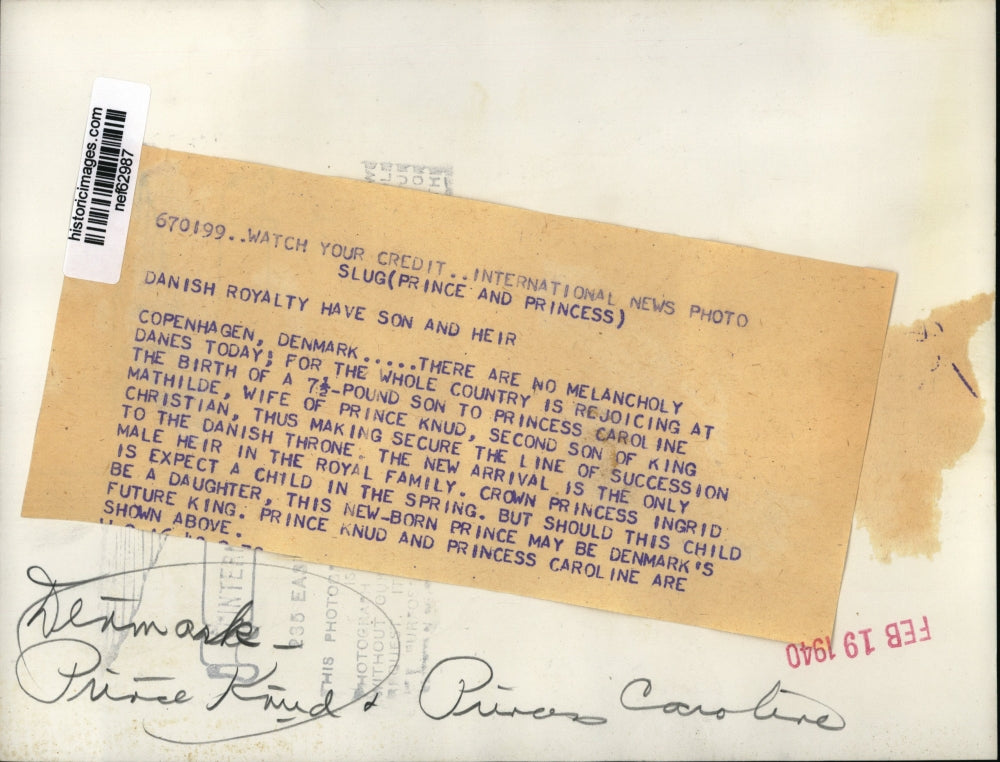 historicimages.com
nef62987
670199..WATCH YOUR CREDIT..INTERNATIONAL NEWS PHOTO
SLUG(PRINCE AND PRINCESS)
DANISH ROYALTY HAVE SON AND HEIR
COPENHAGEN, DENMARK.....THERE ARE NO MELANCHOLY
DANES TODAY; FOR THE WHOLE COUNTRY IS REJOICING AT
THE BIRTH OF A 7½-POUND SON TO PRINCESS CAROLINE
MATHILDE, WIFE OF PRINCE KNUD, SECOND SON OF KING
CHRISTIAN, THUS MAKING SECURE THE LINE OF SUCCESSION
TO THE DANISH THRONE. THE NEW ARRIVAL IS THE ONLY
MALE HEIR IN THE ROYAL FAMILY. CROWN PRINCESS INGRID
IS EXPECT A CHILD IN THE SPRING. BUT SHOULD THIS CHILD
BE A DAUGHTER, THIS NEW-BORN PRINCE MAY BE DENMARK'S
FUTURE KING. PRINCE KNUD AND PRINCESS CAROLINE ARE
SHOWN ABOVE.
FEB 19 1940
Denmark -
Prince Knud & Princess Caroline
235 EA
THIS PHOTO
PHOTOGRA
WITHOUT OU